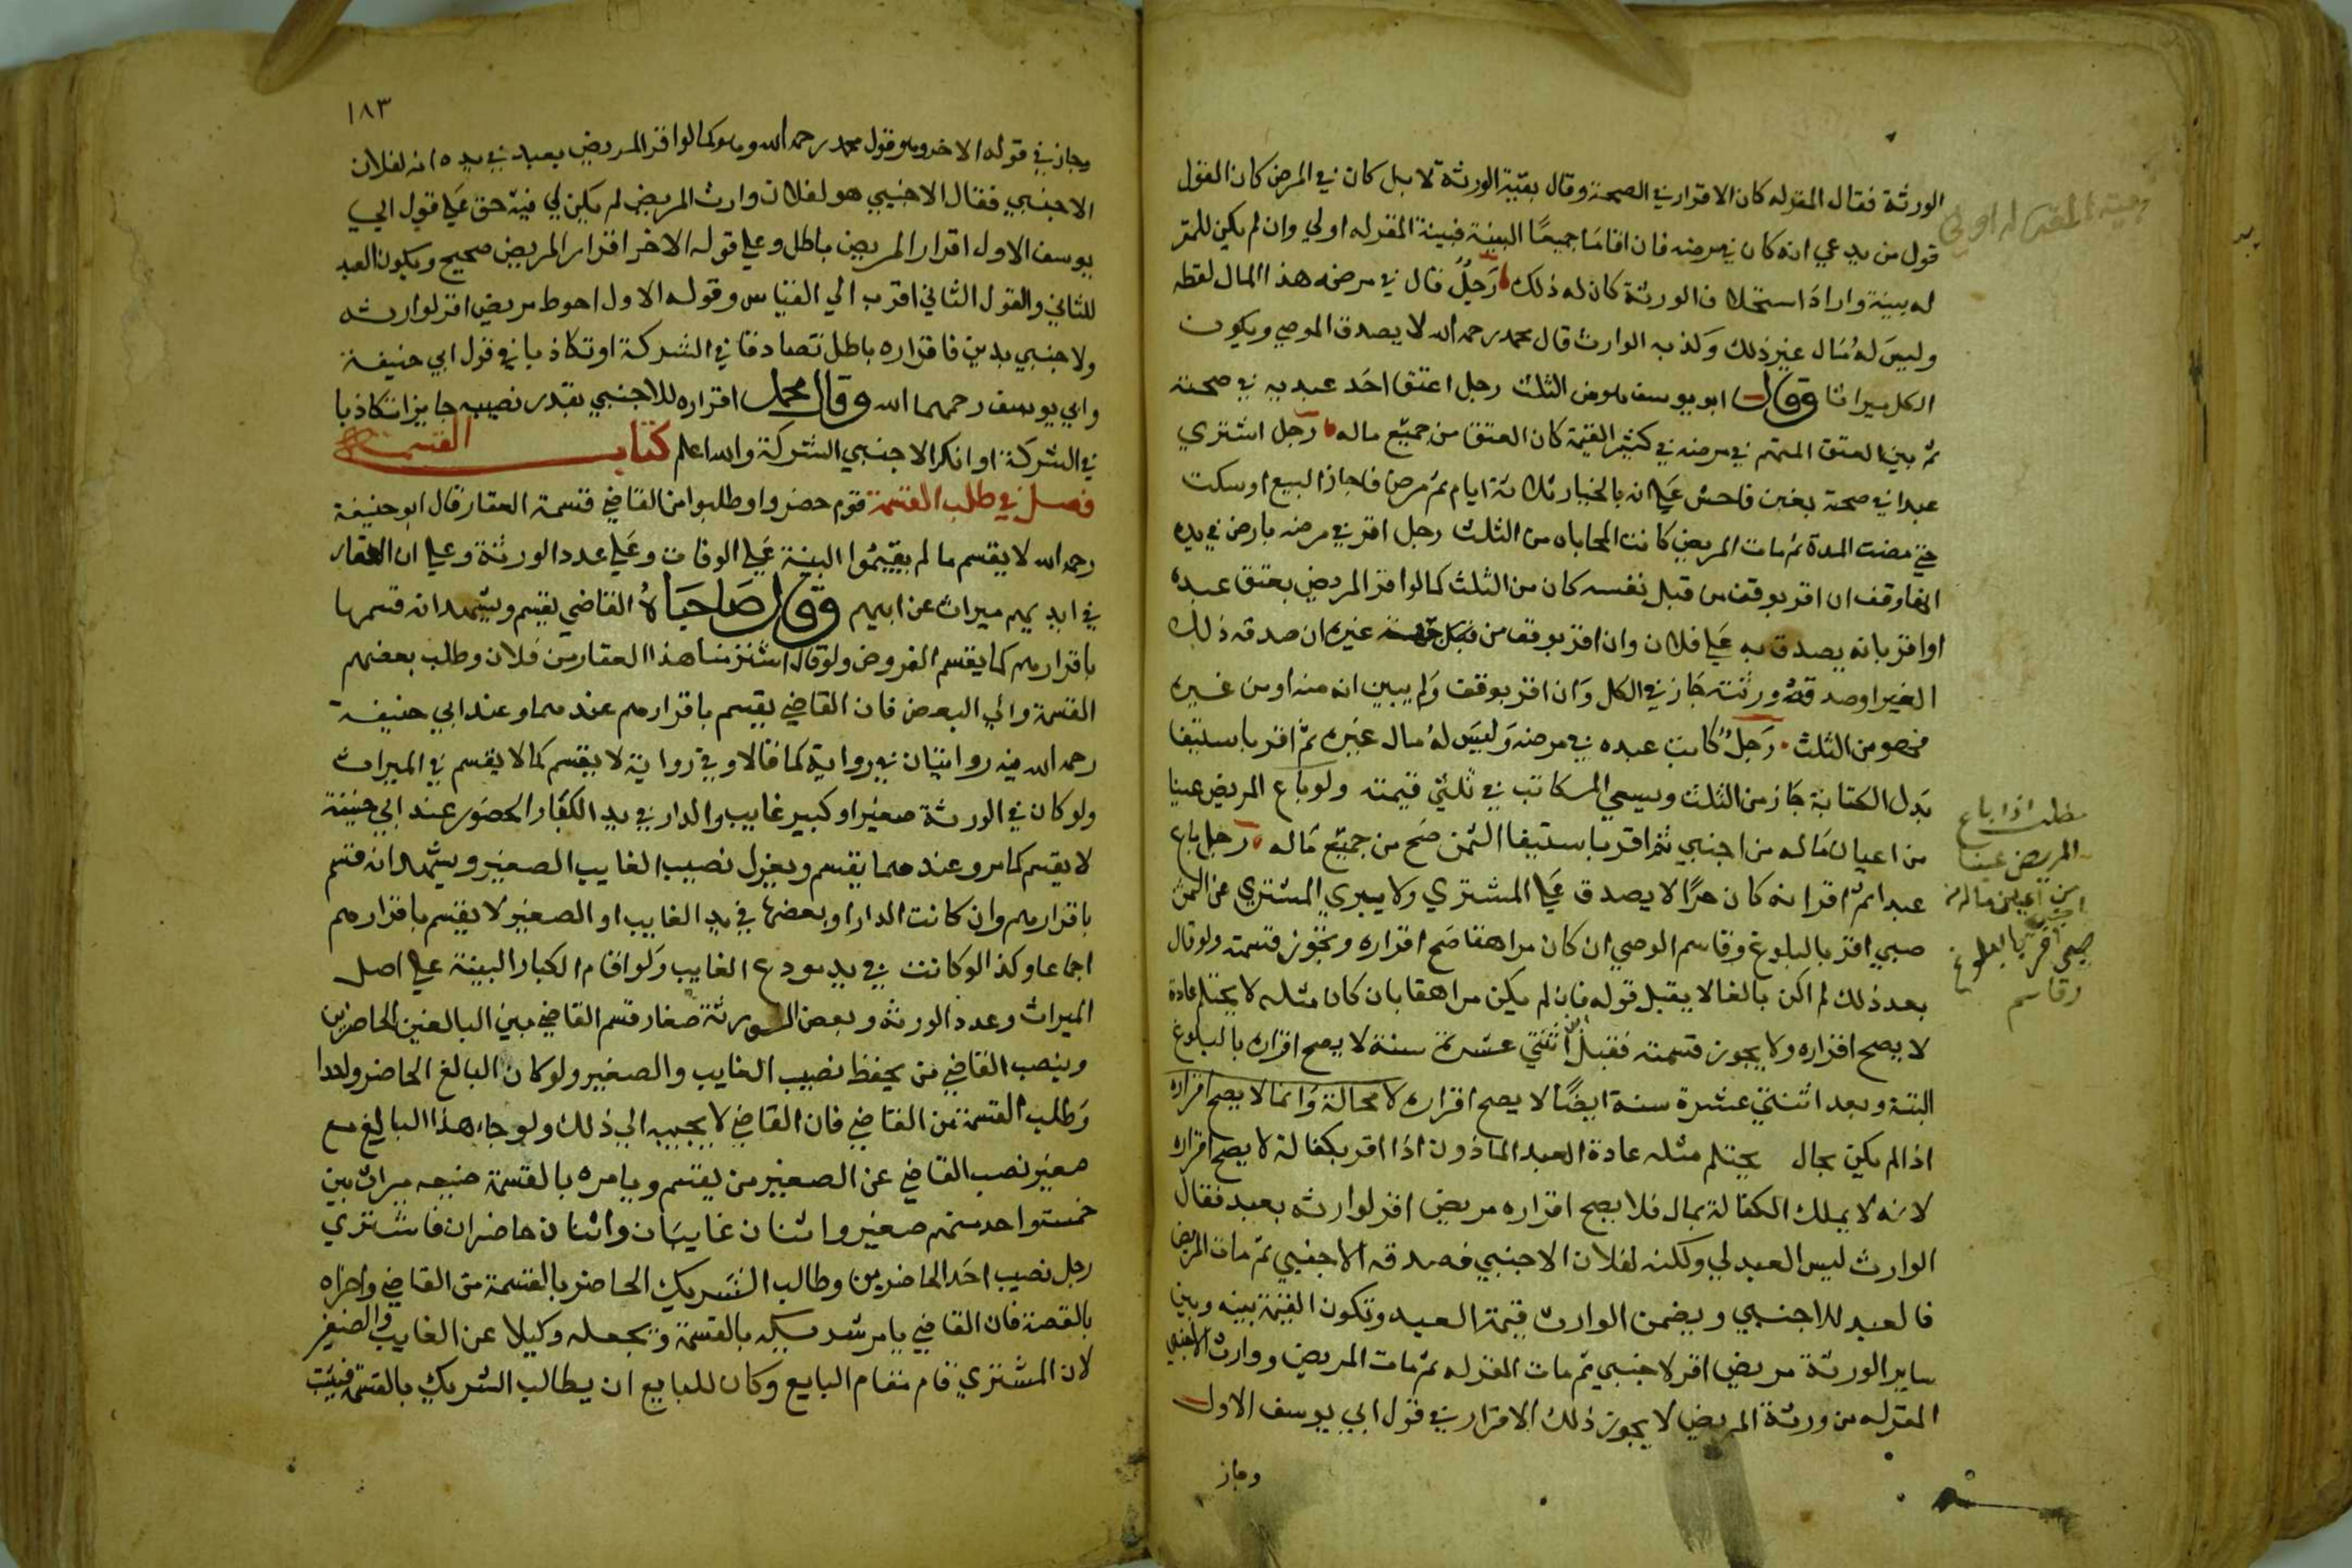 الورثة فقال المقر له كان الاقرار في الصحة وقال بقية الورثة لا بل كان في المرض كان القول
قول من يدعي انه كان في مرضه فان اقاما جميعا البينة فبينة المقر له اولي وان لم يكن للمقر
له بينة واراد استحلاف الورثة كان له ذلك رجل قال في مرضه هذا المال لقطه
وليس له مال غير ذلك وكذبه الوارث قال محمد رحمه الله لا يصدق الموصي ويكون
الكل ميراثا وقال ابو يوسف هو من الثلث رجل اعتق احد عبديه في صحته
ثم بين العتق المبهم في مرضه في كثير القيمة كان العتق من جميع ماله رجل اشتري
عبدا في صحة بغبن فاحش علي انه بالخيار ثلاثة ايام ثم مرض فاجاز البيع او سكت
حتي مضت المدة ثم مات المريض كانت المحاباه من الثلث رجل اقر في مرضه بارض في يده
انها وقف ان اقر بوقف من قبل نفسه كان من الثلث كما لو اقر المريض بعتق عبده
او اقر بانه يصدق به علي فلان وان اقر بوقف من قبل غيره ان صدقه ذلك
الغير او صدقه ورثته جاز في الكل وان اقر بوقف ولم يبين انه منه او من غيره
فهو من الثلث رجل كاتب عبده في مرضه وليس له مال غيره ثم اقر باستيفا
بدل الكتابة جاز من الثلث ويسعي المكاتب في ثلثي قيمته ولو باع المريض عينا
من اعيان ماله من اجنبي ثم اقر باستيفا الثمن صح من جميع ماله رجل باع
عبدا ثم اقر انه كان حرا لا يصدق علي المشتري ولا يبري المشتري عن الثمن
صبي اقر بالبلوغ وقاسم الوصي ان كان مراهقا صح اقراره وتجوز قسمته ولو قال
بعد ذلك لم اكن بالغا لا يقبل قوله فان لم يكن مراهقا بان كان مثله لا يحتلم عادة
لا يصح اقراره ولا يجوز قسمته فقبل اثنتي عشرة سنة لا يصح اقراره بالبلوغ
البتة وبعد اثنتي عشرة سنة ايضا لا يصح اقراره لا محالة وانما لا يصح اقراره
اذا لم يكن بحال يحتلم مثله عادة العبد الماذون اذا اقر بكفالة لا يصح اقراره
لانه لا يملك الكفالة بمال فلا يصح اقراره مريض اقر لوارثه بعبد فقال
الوارث ليس العبد لي ولكنه لفلان الاجنبي فصدقه الاجنبي ثم مات المريض
فالعبد للاجنبي ويضمن الوارث قيمة العبد وتكون القيمة بينه وبين
ساير الورثة مريض اقر لاجنبي ثم مات المقر له ثم مات المريض ووارث الاجنبي
المقر له من ورثة المريض لا يجوز ذلك الاقرار في قول ابي يوسف الاول
وجاز
بينة المقر له اولي
مطلب اذا باع
المريض عينا
من اعيان ماله من
صبي اقر بالبلوغ
وقاسم
١٨٣
وجاز في قوله الاخر وهو قول محمد رحمه الله وهو كما لو اقر المريض بعبد في يده انه لفلان
الاجنبي فقال الاجنبي هو لفلان وارث المريض لم يكن لي فيه حق علي قول ابي
يوسف الاول اقرار المريض باطل وعلي قوله الاخر اقرار المريض صحيح ويكون العبد
للثاني والقول الثاني اقرب الي القياس وقوله الاول احوط مريض اقر لوارثه
ولاجنبي بدين فاقراره باطل تصادقا في الشركة او تكاذبا في قول ابي حنيفة
وابي يوسف رحمهما الله وقال محمد اقراره للاجنبي بقدر نصيبه جايز اذا تكاذبا
في الشركة او انكر الاجنبي الشركة والله اعلم كتاب القسمة
فصل في طلب القسمة قوم حضروا وطلبوا من القاضي قسمة العقار قال ابو حنيفة
رحمه الله لا يقسم ما لم يقيموا البينة علي الوفات وعلي عدد الورثة وعلي ان العقار
في ايديهم ميراث عن ابيهم وقال صاحباه القاضي يقسم ويشهد انه قسمها
باقرارهم كما يقسم العروض ولو قالوا اشترينا هذا العقار من فلان وطلب بعضهم
القسمة وابي البعض فان القاضي يقسم باقرارهم عندهما وعند ابي حنيفة
رحمه الله فيه روايتان في رواية كما قالا وفي رواية لا يقسم كما لا يقسم في الميراث
ولو كان في الورثة صغير او كبير غايب والدار في يد الكبار الحضور عند ابي حنيفة
لا يقسم كما مر وعندهما يقسم ويعزل نصيب الغايب الصغير ويشهد انه قسم
باقرارهم وان كانت الدار او بعضها في يد الغايب او الصغير لا يقسم باقرارهم
اجماعا وكذا لو كانت في يد مودع الغايب ولو اقام الكبار البينة علي اصل
الميراث وعدد الورثه وبعض الورثة صغار قسم القاضي بين البالغين الحاضرين
وينصب القاضي من يحفظ نصيب الغايب والصغير ولو كان البالغ الحاضر واحدا
وطلب القسمة من القاضي فان القاضي لا يجيبه الي ذلك ولو جاء هذا البالغ مع
صغير نصب القاضي عن الصغير من يقسم ويامره بالقسمة ضيعه ميراث بين
خمستواحد منهم صغير واثنان غايبان واثنان حاضران فاشتري
رجل نصيب احد الحاضرين وطالب الشريك الحاضر بالقسمة من القاضي واخبراه
بالقصة فان القاضي يامر شريكه بالقسمة ويجعله وكيلا عن الغايب والصغير
لان المشتري قام مقام البايع وكان للبايع ان يطالب الشريك بالقسمة